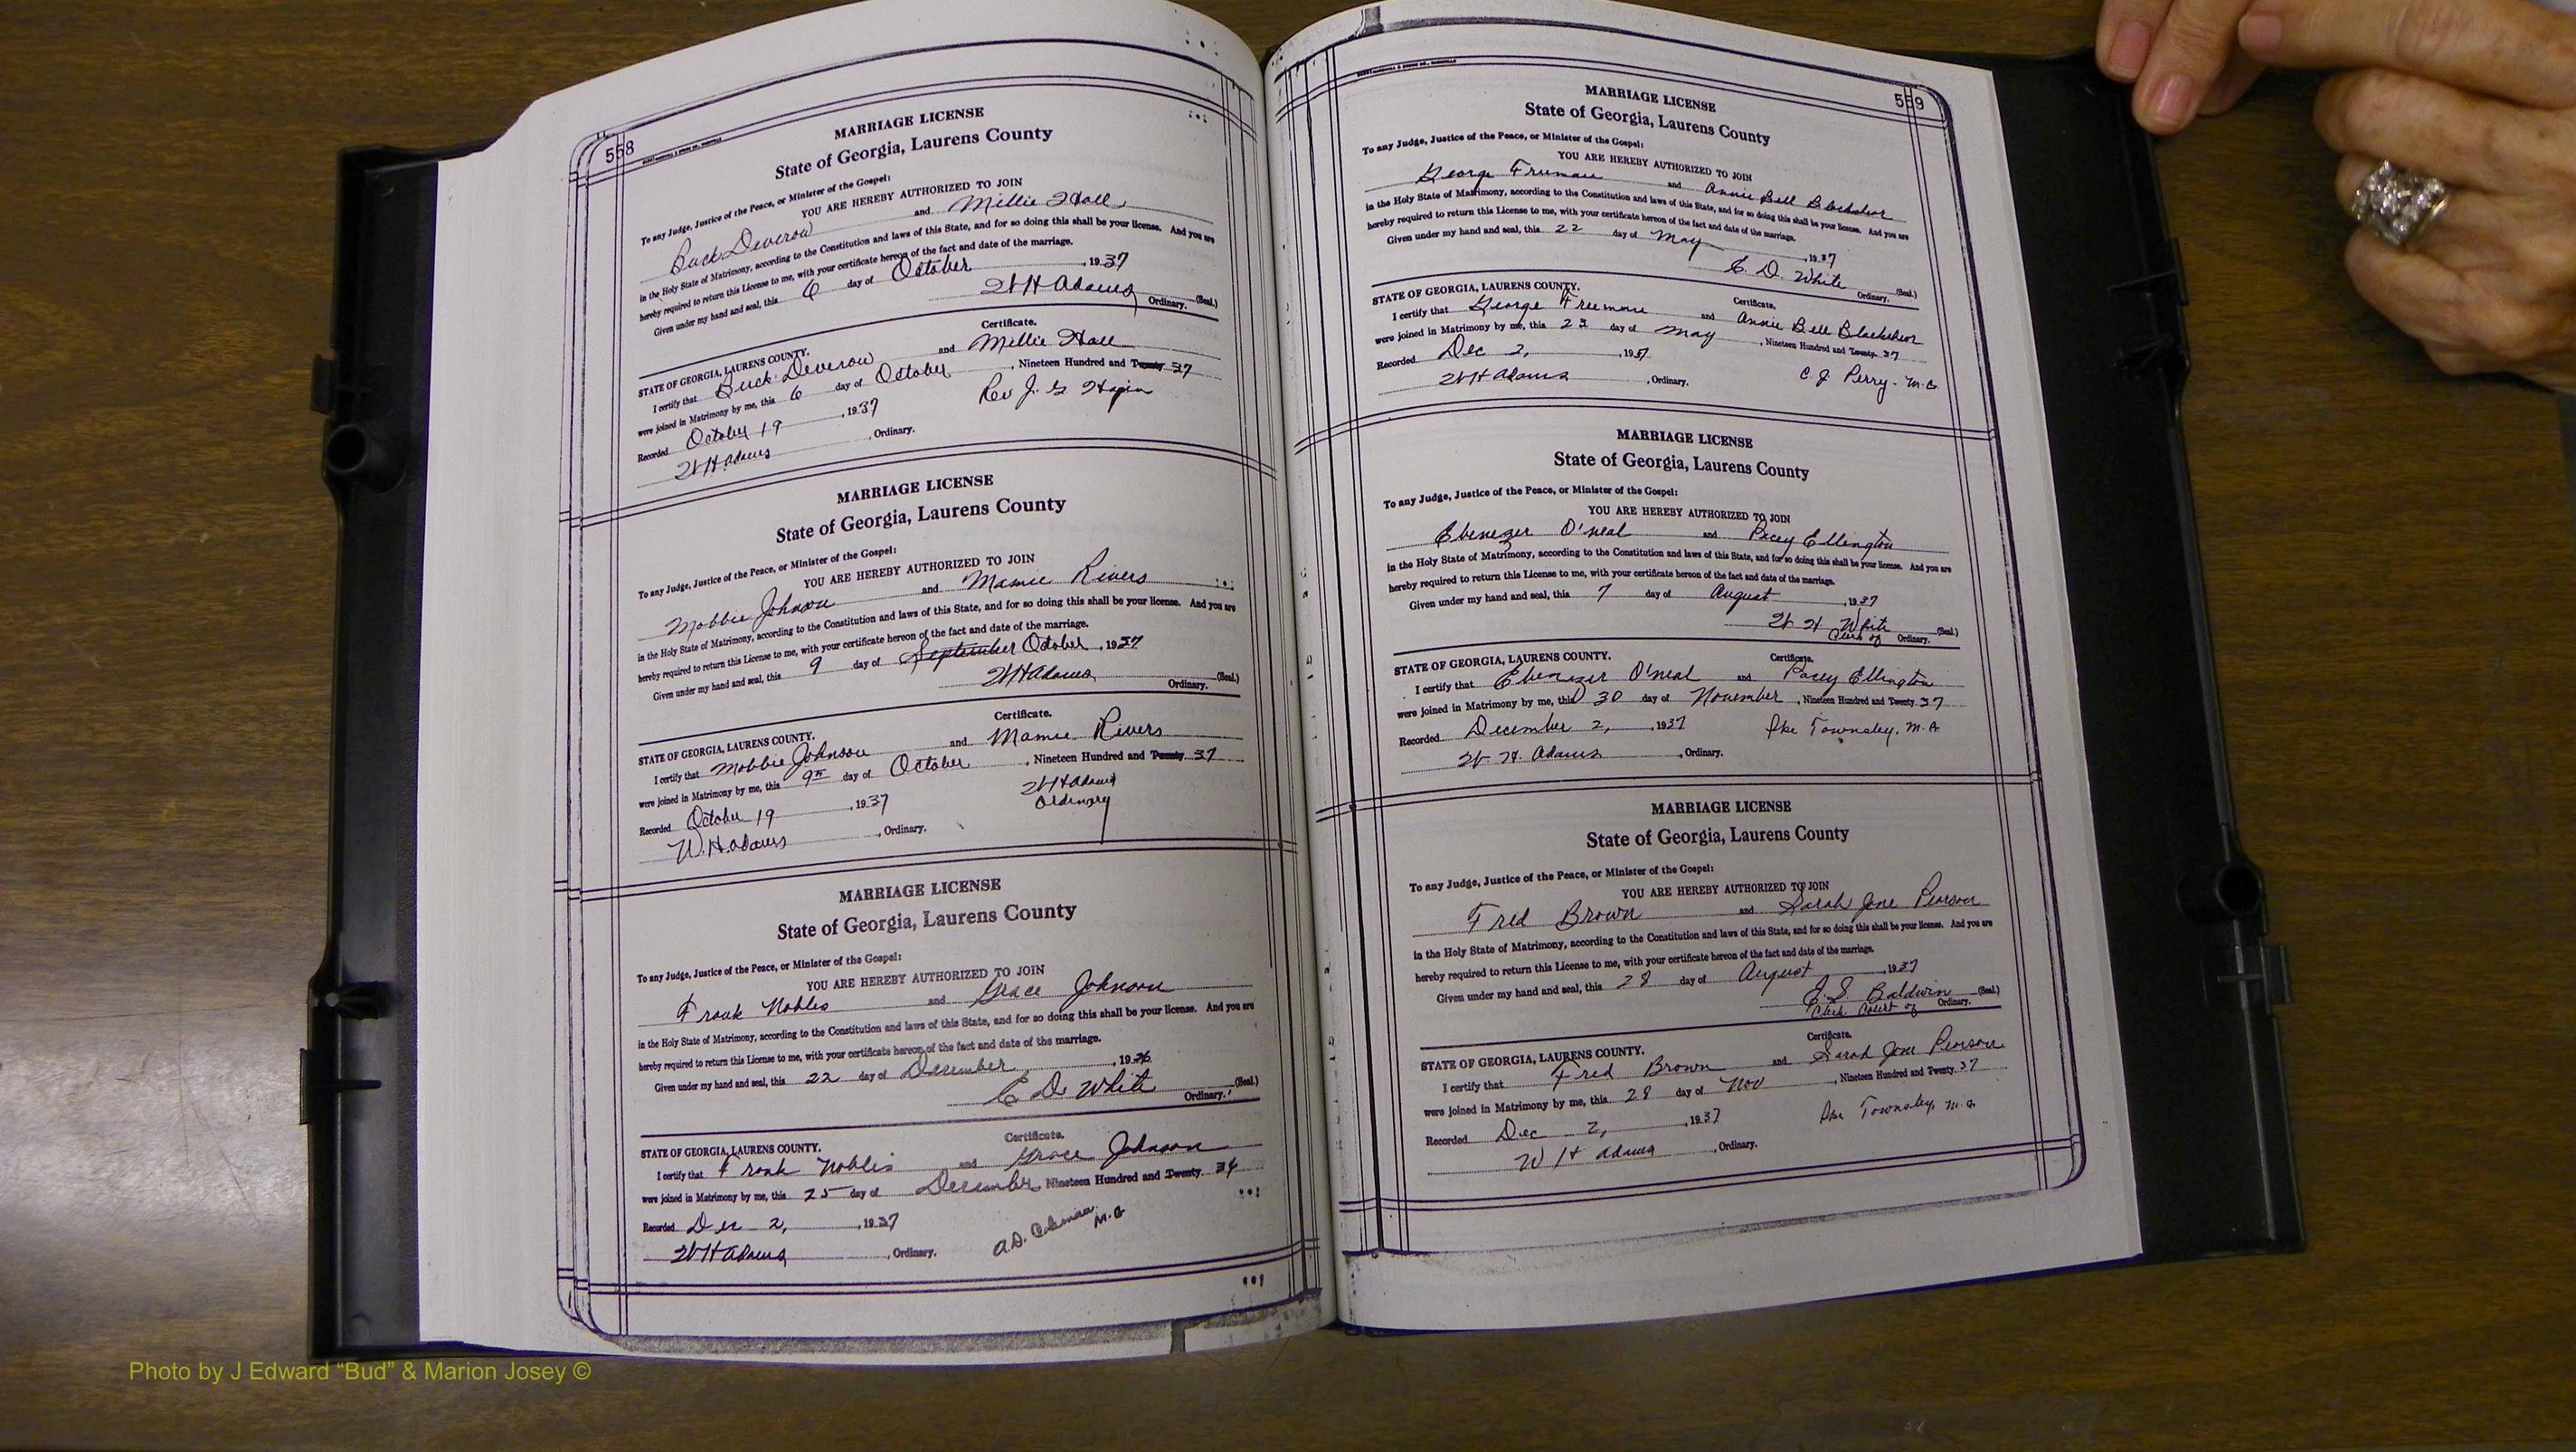 558
MARRIAGE LICENSE
State of Georgia, Laurens County
To any Judge, Justice of the Peace, or Minister of the Gospel:
YOU ARE HEREBY AUTHORIZED TO JOIN
Buck Deverow and Millie Hall
in the Holy State of Matrimony, according to the Constitution and laws of this State, and for so doing this shall be your license. And you are
hereby required to return this License to me, with your certificate hereon of the fact and date of the marriage.
Given under my hand and seal, this 6 day of October, 1937
W H Adams Ordinary. (Seal.)
Certificate.
STATE OF GEORGIA, LAURENS COUNTY.
I certify that Buck Deverow and Millie Hall
were joined in Matrimony by me, this 6 day of October, Nineteen Hundred and Twenty 37
Recorded October 19, 1937 Rev J. G.
W H Adams, Ordinary.
MARRIAGE LICENSE
State of Georgia, Laurens County
To any Judge, Justice of the Peace, or Minister of the Gospel:
YOU ARE HEREBY AUTHORIZED TO JOIN
Mobbie Johnson and Mamie Rivers
in the Holy State of Matrimony, according to the Constitution and laws of this State, and for so doing this shall be your license. And you are
hereby required to return this License to me, with your certificate hereon of the fact and date of the marriage.
Given under my hand and seal, this 9 day of September October, 1937
W H Adams Ordinary. (Seal.)
Certificate.
STATE OF GEORGIA, LAURENS COUNTY.
I certify that Mobbie Johnson and Mamie Rivers
were joined in Matrimony by me, this 9th day of October, Nineteen Hundred and Twenty 37
Recorded October 19, 1937 W H Adams
W. H. Adams, Ordinary. Ordinary
MARRIAGE LICENSE
State of Georgia, Laurens County
To any Judge, Justice of the Peace, or Minister of the Gospel:
YOU ARE HEREBY AUTHORIZED TO JOIN
Frank Nobles and Grace Johnson
in the Holy State of Matrimony, according to the Constitution and laws of this State, and for so doing this shall be your license. And you are
hereby required to return this License to me, with your certificate hereon of the fact and date of the marriage.
Given under my hand and seal, this 22 day of December, 1936
C D. White Ordinary. (Seal.)
Certificate.
STATE OF GEORGIA, LAURENS COUNTY.
I certify that Frank Nobles and Grace Johnson
were joined in Matrimony by me, this 25 day of December, Nineteen Hundred and Twenty
Recorded Dec 2, 1937 A.D. M.G
W H Adams, Ordinary.
559
MARRIAGE LICENSE
State of Georgia, Laurens County
To any Judge, Justice of the Peace, or Minister of the Gospel:
YOU ARE HEREBY AUTHORIZED TO JOIN
George Freeman and Annie Bell Blackshear
in the Holy State of Matrimony, according to the Constitution and laws of this State, and for so doing this shall be your license. And you are
hereby required to return this License to me, with your certificate hereon of the fact and date of the marriage.
Given under my hand and seal, this 22 day of May, 1937
C. D. White Ordinary. (Seal.)
Certificate.
STATE OF GEORGIA, LAURENS COUNTY.
I certify that George Freeman and Annie Bell Blackshear
were joined in Matrimony by me, this 23 day of May, Nineteen Hundred and Twenty 37
Recorded Dec 2, 1937 C. J. Perry. M.G.
W H Adams, Ordinary.
MARRIAGE LICENSE
State of Georgia, Laurens County
To any Judge, Justice of the Peace, or Minister of the Gospel:
YOU ARE HEREBY AUTHORIZED TO JOIN
Ebenezer O'neal and Pacey Ellington
in the Holy State of Matrimony, according to the Constitution and laws of this State, and for so doing this shall be your license. And you are
hereby required to return this License to me, with your certificate hereon of the fact and date of the marriage.
Given under my hand and seal, this 7 day of August, 1937
W H. White (Seal.)
Clerk of Ordinary.
Certificate.
STATE OF GEORGIA, LAURENS COUNTY.
I certify that Ebenezer O'neal and Pacey Ellington
were joined in Matrimony by me, this 30 day of November, Nineteen Hundred and Twenty 37
Recorded December 2, 1937 Ike Townsley, M.G
W. H. Adams, Ordinary.
MARRIAGE LICENSE
State of Georgia, Laurens County
To any Judge, Justice of the Peace, or Minister of the Gospel:
YOU ARE HEREBY AUTHORIZED TO JOIN
Fred Brown and Sarah Jane Pearson
in the Holy State of Matrimony, according to the Constitution and laws of this State, and for so doing this shall be your license. And you are
hereby required to return this License to me, with your certificate hereon of the fact and date of the marriage.
Given under my hand and seal, this 28 day of August, 1937
E. S. Baldwin (Seal.)
Clerk Court of Ordinary.
Certificate.
STATE OF GEORGIA, LAURENS COUNTY.
I certify that Fred Brown and Sarah Jane Pearson
were joined in Matrimony by me, this 28 day of Nov, Nineteen Hundred and Twenty 37
Recorded Dec 2, 1937 Ike Townsley, M.G
W H Adams, Ordinary.
Photo by J Edward “Bud” & Marion Josey ©